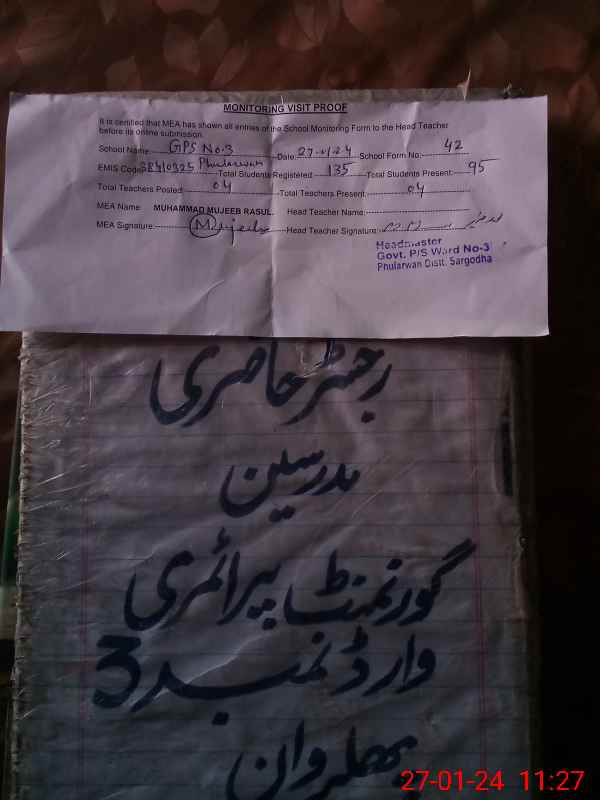 MONITORING VISIT PROOF
It is certified that MEA has shown all entries of the School Monitoring Form to the Head Teacher
before its online submission.
School Name: GPS No.3 Date: 27-1/24 School Form No: 42
EMIS Code: 38410325 Phularwan Total Students Registered: 135 Total Students Present: 95
Total Teachers Posted: 04 Total Teachers Present: 04
MEA Name: MUHAMMAD MUJEEB RASUL. Head Teacher Name:
MEA Signature: Mujeeb Head Teacher Signature:
Headmaster
Govt. P/S Ward No-3
Phularwan Distt. Sargodha
رجسٹر حاضری
مدرسین
گورنمنٹ پرائمری
وارڈ نمبر 3
پھلروان
27-01-24 11:27